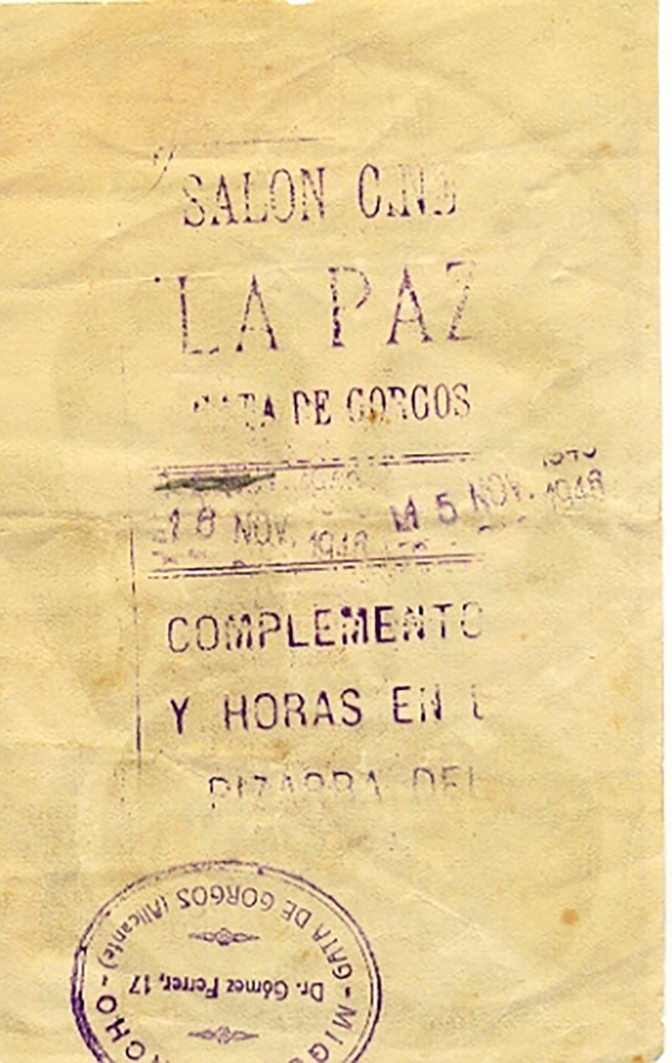 SALON CINE
LA PAZ
GATA DE GORGOS
18 NOV. 1948 M 5 NOV. 1948
COMPLEMENTO
Y HORAS EN L
PIZARRA DEL
GATA DE GORGOS (Alicante)
Dr. Gómez Ferrer, 17